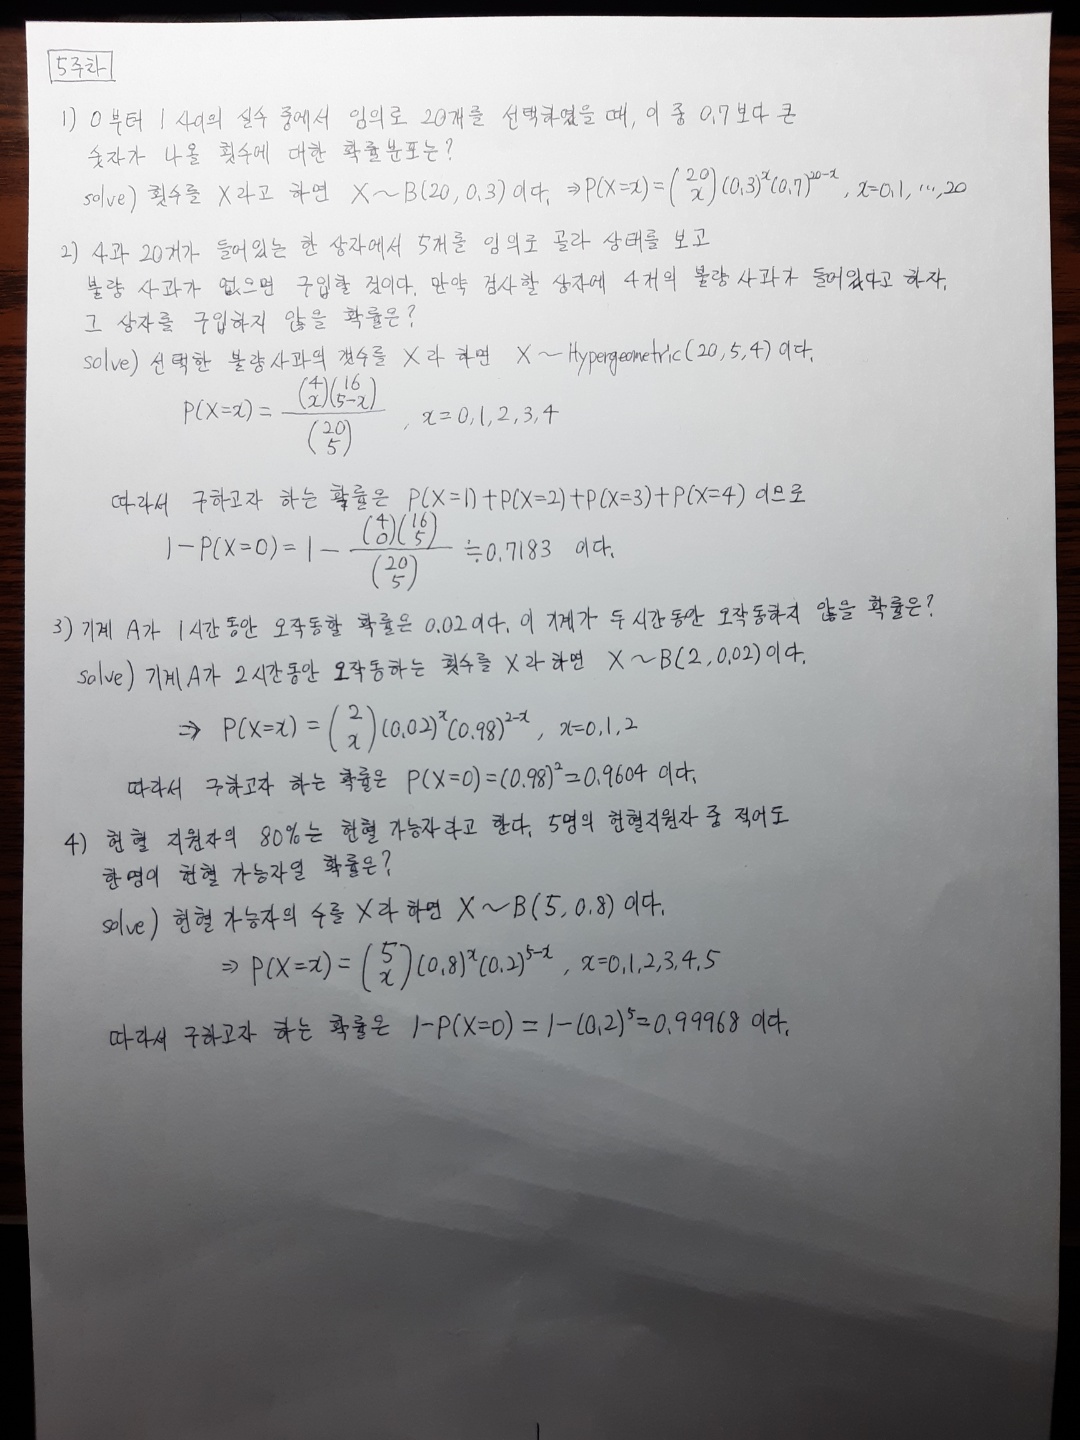 5주차
1) 0부터 1 사이의 실수 중에서 임의로 20개를 선택하였을 때, 이 중 0.7보다 큰
숫자가 나올 횟수에 대한 확률분포는?
solve) 횟수를 X라고 하면 X~B(20, 0.3)이다. ⇒P(X=x)=(20 x)(0.3)^x(0.7)^20-x, x=0,1,…,20
2) 사과 20개가 들어있는 한 상자에서 5개를 임의로 골라 상태를 보고
불량 사과가 없으면 구입할 것이다. 만약 검사할 상자에 4개의 불량 사과가 들어있다고 하자.
그 상자를 구입하지 않을 확률은?
solve) 선택한 불량사과의 갯수를 X라 하면 X~Hypergeometric(20,5,4)이다.
P(X=x)= (4 x)(16 5-x) / (20 5) , x=0,1,2,3,4
따라서 구하고자 하는 확률은 P(X=1)+P(X=2)+P(X=3)+P(X=4) 이므로
1-P(X=0)=1- (4 0)(16 5) / (20 5) ≒0.7183 이다.
3) 기계 A가 1시간동안 오작동할 확률은 0.02이다. 이 기계가 두시간동안 오작동하지 않을 확률은?
solve) 기계A가 2시간동안 오작동하는 횟수를 X라 하면 X~B(2,0.02)이다.
⇒ P(X=x)=(2 x)(0.02)^x(0.98)^2-x, x=0,1,2
따라서 구하고자 하는 확률은 P(X=0)=(0.98)^2=0.9604 이다.
4) 헌혈 지원자의 80%는 헌혈 가능자라고 한다. 5명의 헌혈지원자 중 적어도
한명이 헌혈 가능자일 확률은?
solve) 헌혈 가능자의 수를 X라 하면 X~B(5, 0.8)이다.
⇒ P(X=x)=(5 x)(0.8)^x(0.2)^5-x, x=0,1,2,3,4,5
따라서 구하고자 하는 확률은 1-P(X=0)=1-(0.2)^5=0.99968 이다.